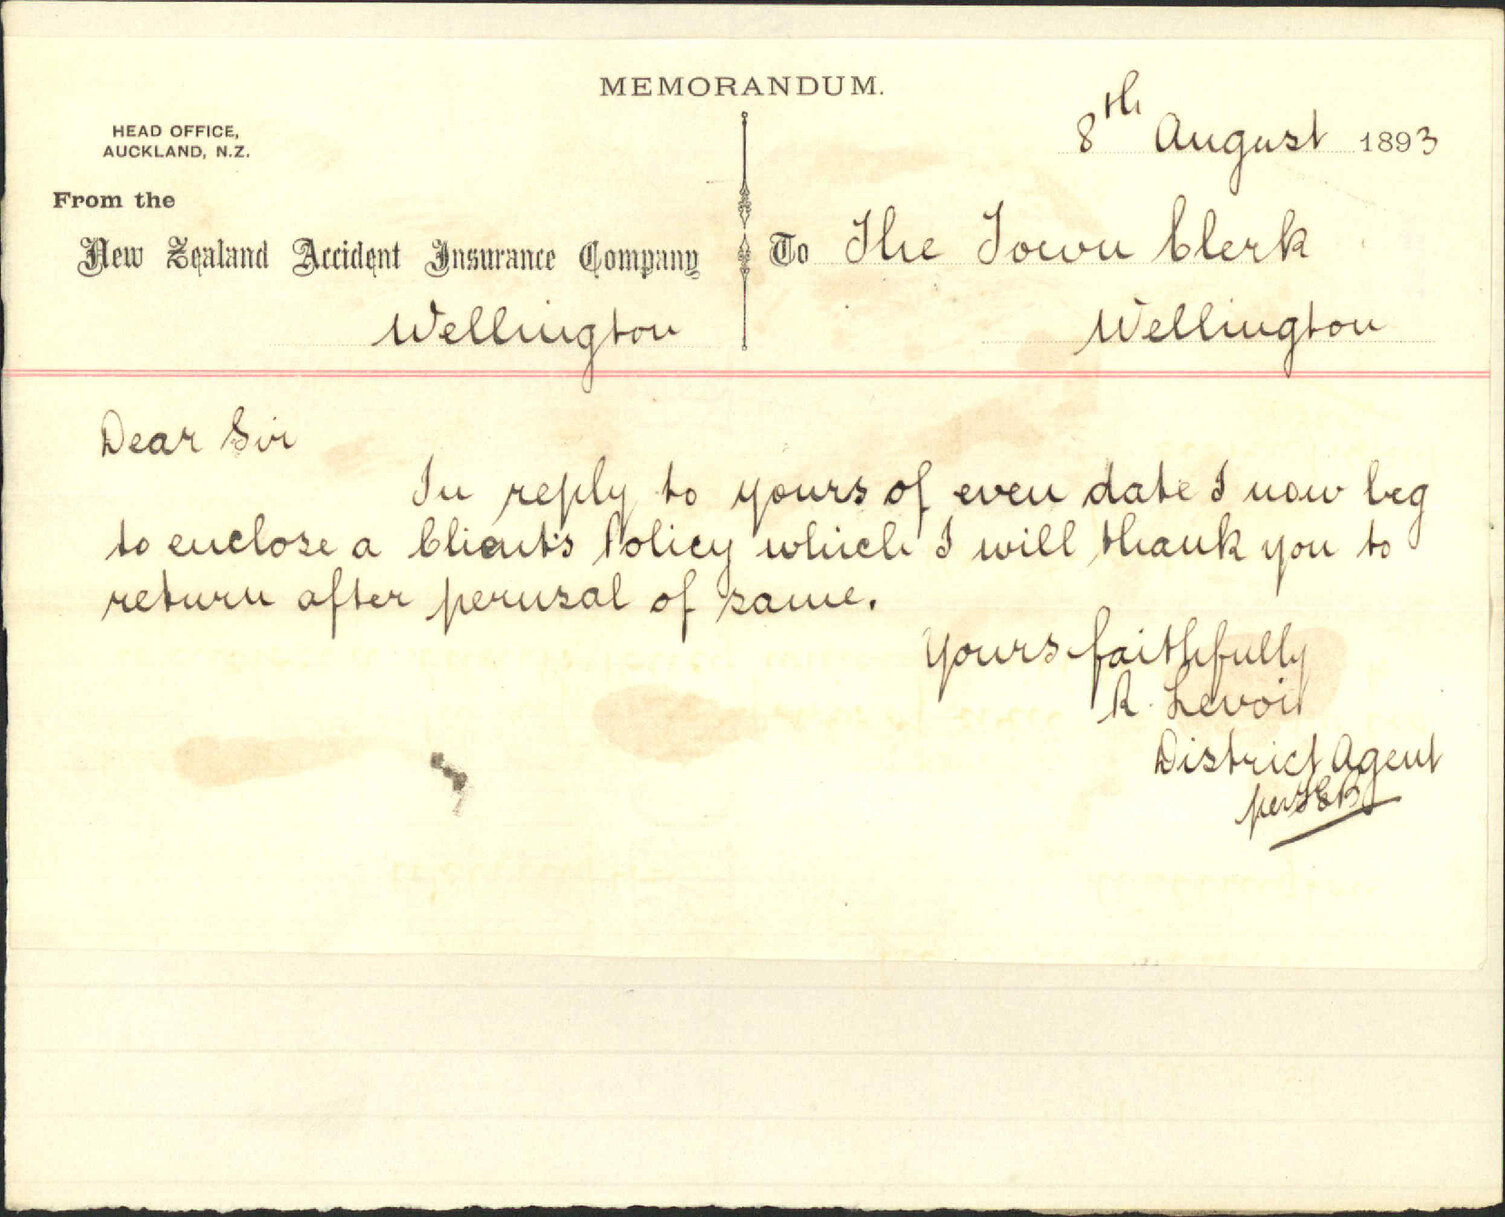 MEMORANDUM.
HEAD OFFICE,
AUCKLAND, N.Z.
8th August 1893
From the
New Zealand Accident Insurance Company
To The Town Clerk
Wellington
Wellington
Dear Sir
In reply to yours of even date I now beg
to enclose a Client's Policy which I will thank you to
return after perusal of same.
Yours faithfully
R. Levoi
District Agent
per